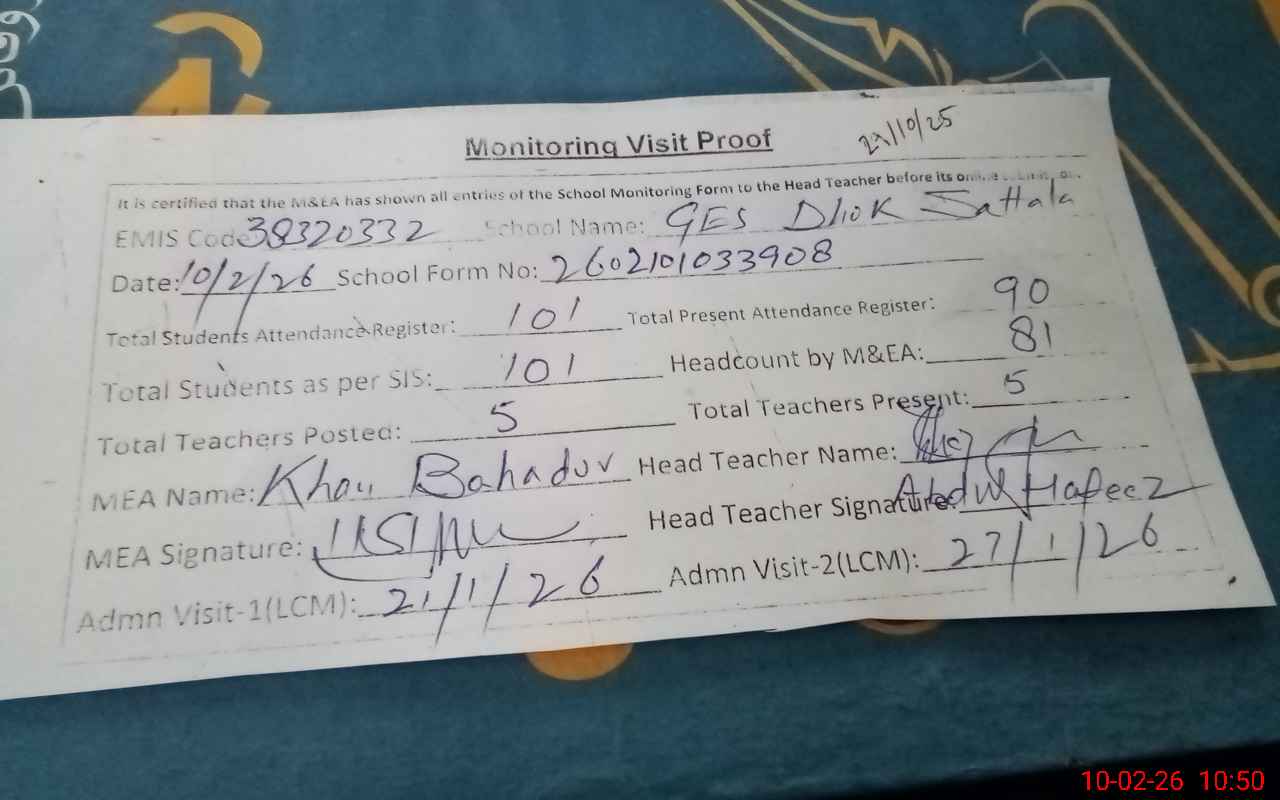 Monitoring Visit Proof
29/10/25
It is certified that the M&EA has shown all entries of the School Monitoring Form to the Head Teacher before its
EMIS Code 38320332 School Name: GES Dhok Sattala
Date: 10/2/26 School Form No: 2602101033908
Total Students Attendance Register: 101 Total Present Attendance Register: 90
Total Students as per SIS: 101 Headcount by M&EA: 81
Total Teachers Posted: 5 Total Teachers Present: 5
MEA Name: Khan Bahadur Head Teacher Name:
MEA Signature: Head Teacher Signature: Abdul Hafeez
Admn Visit-1(LCM): 21/1/26 Admn Visit-2(LCM): 27/1/26
10-02-26 10:50